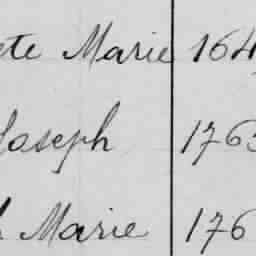 ete Marie 164
Joseph 1763
h Marie 176